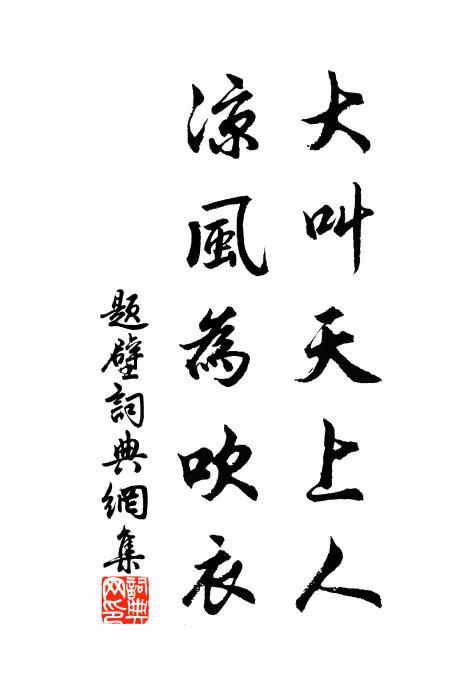 大叫天上人
涼風為吹衣
題壁詞典網集
詞典網印